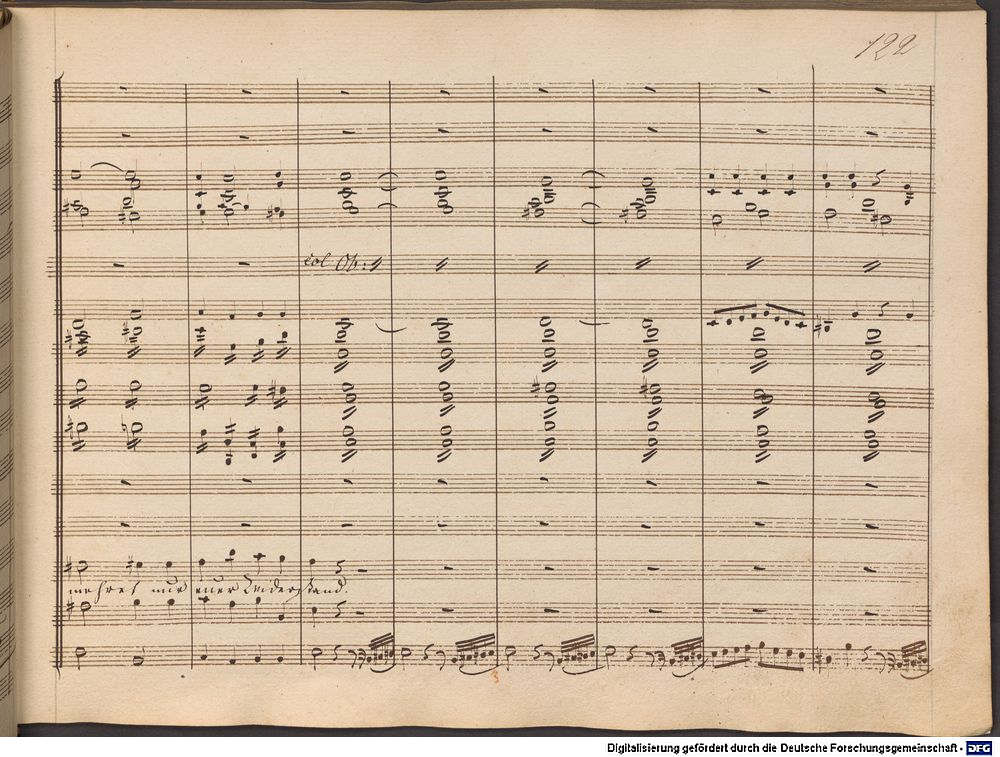 122
col Ob:
mehret nur euer Widerstand.
3
Digitalisierung gefördert durch die Deutsche Forschungsgemeinschaft - DFG